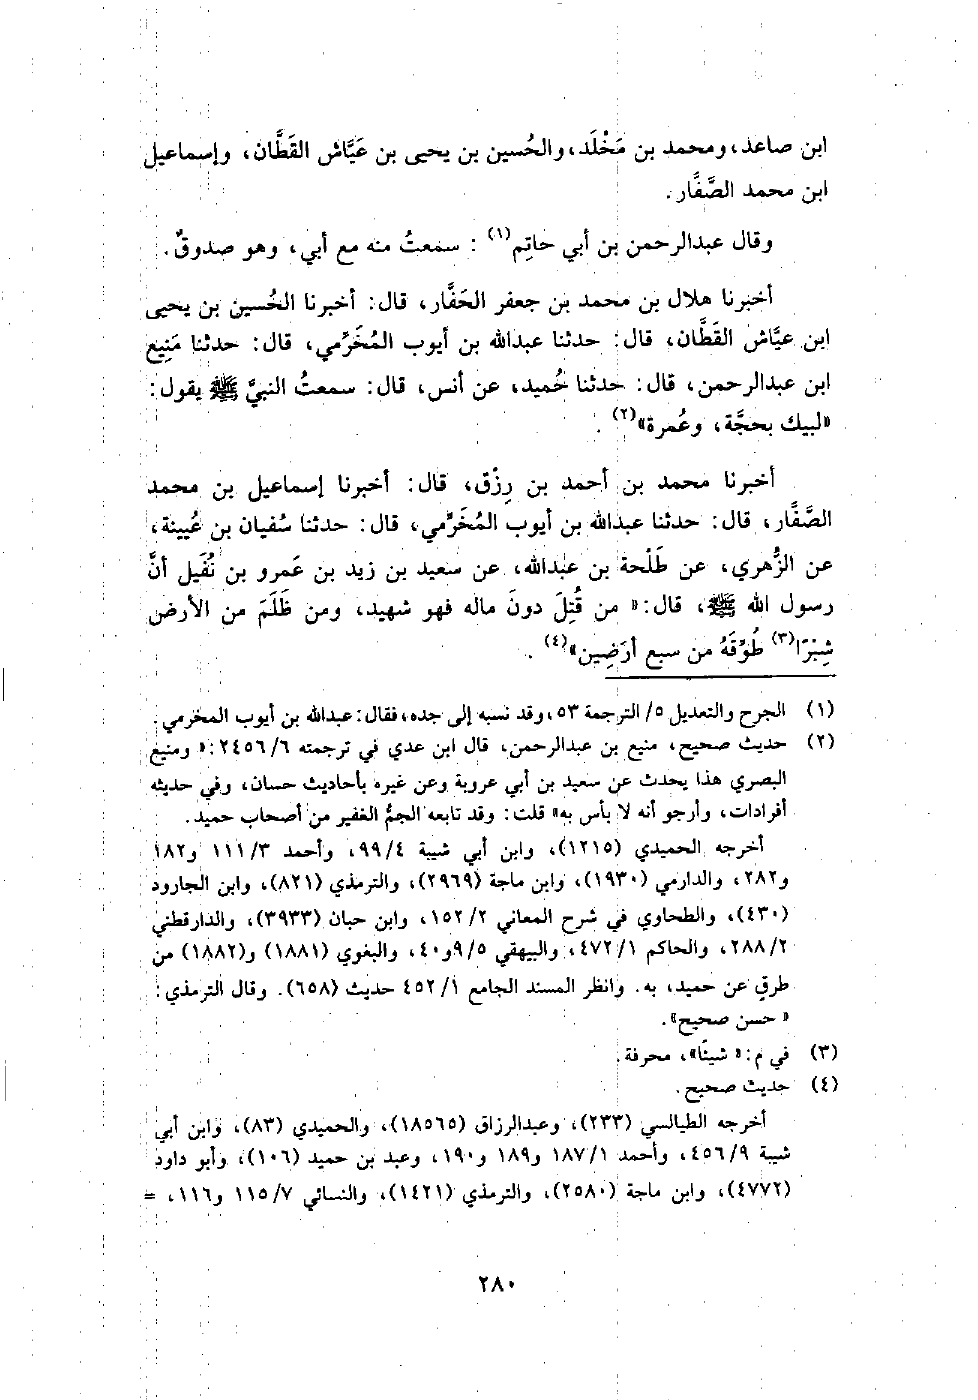 ابن صاعد، ومحمد بن مَخْلَد، والحُسين بن يحيى بن عَيَّاش القَطَّان، وإسماعيل
ابن محمد الصَّفَّار.
وقال عبدالرحمن بن أبي حاتِم(١) : سمعتُ منه مع أبي، وهو صدوقٌ.
أخبرنا هلال بن محمد بن جعفر الحَفَّار، قال: أخبرنا الحُسين بن يحيى
ابن عيَّاش القَطَّان، قال: حدثنا عبدالله بن أيوب المُخَرِّمي، قال: حدثنا مَنِيع
ابن عبدالرحمن، قال: حدثنا حُميد، عن أنس، قال: سمعتُ النبيَّ ﷺ يقول:
«لبيك بحجَّة، وعُمرة»(٢) .
أخبرنا محمد بن أحمد بن رِزْق، قال: أخبرنا إسماعيل بن محمد
الصَّفَّار، قال: حدثنا عبدالله بن أيوب المُخَرِّمي، قال: حدثنا سُفيان بن عُيينة،
عن الزُّهري، عن طَلْحة بن عبدالله، عن سعيد بن زيد بن عَمرو بن نُفَيل أنَّ
رسول الله ﷺ، قال: «من قُتِلَ دونَ ماله فهو شهيد، ومن ظَلَمَ من الأرض
شِبْرًا(٣) طُوِّقَهُ من سبع أرَضِين»(٤) .
(١) الجرح والتعديل ٥/ الترجمة ٥٣، وقد نسبه إلى جده، فقال: عبدالله بن أيوب المخرمي.
(٢) حديث صحيح، منيع بن عبدالرحمن، قال ابن عدي في ترجمته ٢٤٥٦/٦: «ومنيع
البصري هذا يحدث عن سعيد بن أبي عروبة وعن غيره بأحاديث حسان، وفي حديثه
أفرادات، وأرجو أنه لا بأس به» قلت: وقد تابعه الجمُّ الغفير من أصحاب حميد.
أخرجه الحميدي (١٢١٥)، وابن أبي شيبة ٩٩/٤، وأحمد ١١١/٣ و١٨٢
و٢٨٢، والدارمي (١٩٣٠)، وابن ماجة (٢٩٦٩)، والترمذي (٨٢١)، وابن الجارود
(٤٣٠)، والطحاوي في شرح المعاني ١٥٢/٢، وابن حبان (٣٩٣٣)، والدارقطني
٢٨٨/٢، والحاكم ٤٧٢/١، والبيهقي ٩/٥ و٤٠، والبغوي (١٨٨١) و(١٨٨٢) من
طرق عن حميد، به. وانظر المسند الجامع ٤٥٢/١ حديث (٦٥٨). وقال الترمذي:
«حسن صحيح».
(٣) في م: «شيئًا»، محرفة.
(٤) حديث صحيح.
أخرجه الطيالسي (٢٣٣)، وعبدالرزاق (١٨٥٦٥)، والحميدي (٨٣)، وابن أبي
شيبة ٤٥٦/٩، وأحمد ١٨٧/١ و١٨٩ و١٩٠، وعبد بن حميد (١٠٦)، وأبو داود
(٤٧٧٢)، وابن ماجة (٢٥٨٠)، والترمذي (١٤٢١)، والنسائي ١١٥/٧ و١١٦، =
٢٨٠